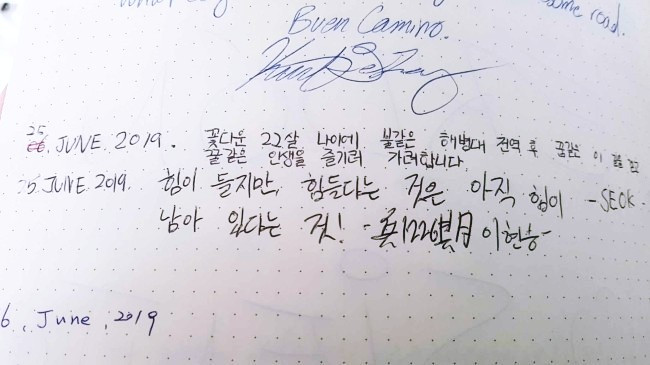 some road.
Buen Camino.
25
. JUNE. 2019. 꽃다운 22살 나이에 불같은 해병대 전역 후 꿈같은 이
꿀같은 인생을 즐기러 가려합니다.
25. JUNE. 2019. 힘이 들지만, 힘들다는 것은 아직 힘이 -SEOK.
남아 있다는 것! 이현승-
6. June, 2019